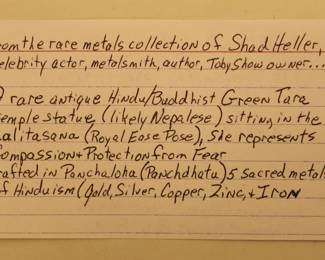 rom the rare metals collection of Shad Heller,
elebrity actor, metalsmith, author, Toby Show owner...
rare antique Hindu/Buddhist Green Tara
emple statue, (likely Nepalese) sitting in the
alitasana (Royal Ease Pose), She represents
ompassion + Protection from Fear
rafted in Panchaloha (Panchdhatu) 5 sacred metals
f Hinduism (Gold, Silver, Copper, Zinc, + Iron